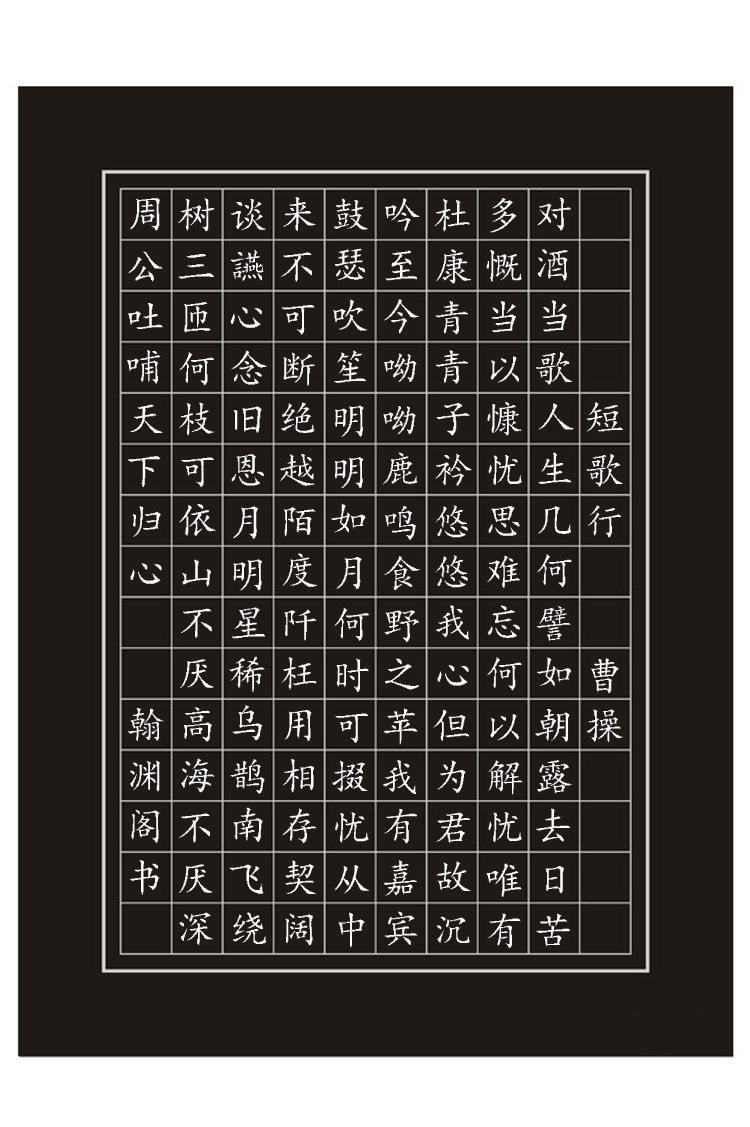 短歌行 曹操
对酒当歌人生几何譬如朝露去日苦
多慨当以慷忧思难忘何以解忧唯有
杜康青青子衿悠悠我心但为君故沉
吟至今呦呦鹿鸣食野之苹我有嘉宾
鼓瑟吹笙明明如月何时可掇忧从中
来不可断绝越陌度阡枉用相存契阔
谈讌心念旧恩月明星稀乌鹊南飞绕
树三匝何枝可依山不厌高海不厌深
周公吐哺天下归心 翰渊阁书